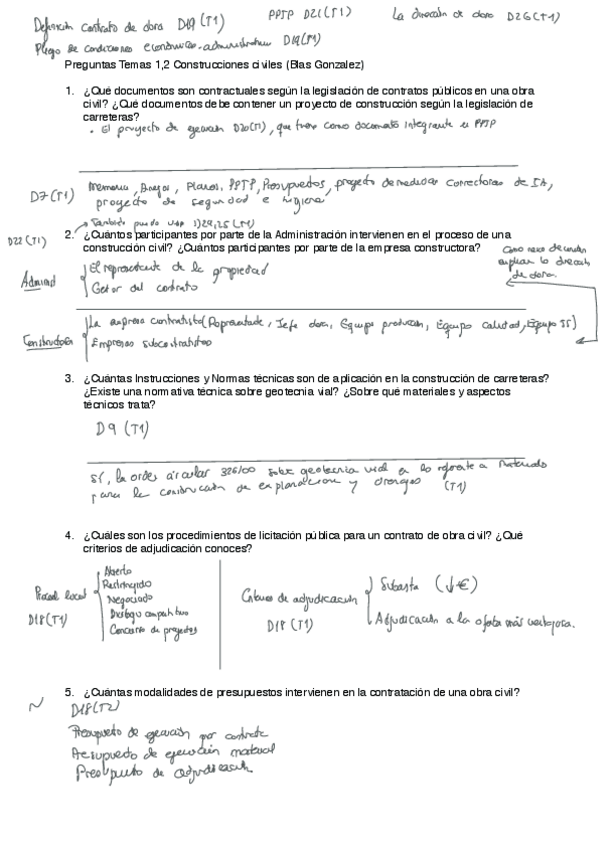 Definición contrato de obra D19 (T1)
PPTP D21 (T1)
La dirección de obra D26 (T1)
Pliego de condiciones económico-administrativo D19 (T1)
Preguntas Temas 1,2 Construcciones civiles (Blas Gonzalez)
1. ¿Qué documentos son contractuales según la legislación de contratos públicos en una obra
civil? ¿Qué documentos debe contener un proyecto de construcción según la legislación de
carreteras?
• El proyecto de ejecución D20 (T1), que tiene como documento integrante el PPTP
D7 (T1)
Memoria, Anejos, Planos, PPTP, Presupuestos, proyecto de medidas correctoras de IA,
proyecto de seguridad e higiene
También puedo usar 1) 24, 25 (T1)
D22 (T1)
2. ¿Cuántos participantes por parte de la Administración intervienen en el proceso de una
construcción civil? ¿Cuántos participantes por parte de la empresa constructora?
explicar la dirección
de obra.
Administ
El representante de la propiedad
Gestor del contrato
Constructora
La empresa contratista (Representante, Jefe obra, Equipo producción, Equipo calidad, Equipo SS)
Empresas subcontratistas
3. ¿Cuántas Instrucciones y Normas técnicas son de aplicación en la construcción de carreteras?
¿Existe una normativa técnica sobre geotecnia vial? ¿Sobre qué materiales y aspectos
técnicos trata?
D9 (T1)
Sí, la orden circular 326/00 sobre geotecnia vial en lo referente a materiales
para la construcción de explanaciones y drenajes (T1)
4. ¿Cuáles son los procedimientos de licitación pública para un contrato de obra civil? ¿Qué
criterios de adjudicación conoces?
Abierto
Restringido
Negociado
Diálogo competitivo
Concurso de proyectos
D18 (T1)
Criterios de adjudicación
D18 (T1)
Subasta (↓€)
Adjudicación a la oferta más ventajosa.
5. ¿Cuántas modalidades de presupuestos intervienen en la contratación de una obra civil?
D18 (T2)
Presupuesto de ejecución por contrata
Presupuesto de ejecución material
Presupuesto de adjudicación